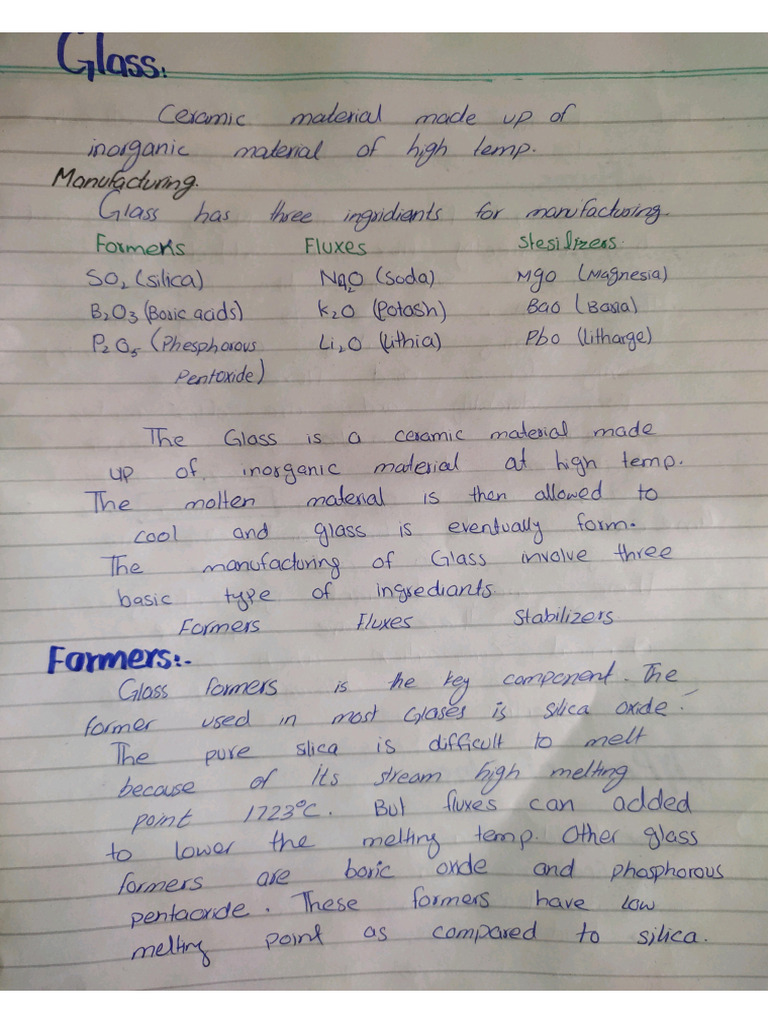 Glass:
Ceramic material made up of
inorganic material of high temp.
Manufacturing.
Glass has three ingridients for manufacturing.
Formers Fluxes Stesilizers.
SO2 (silica) Na2O (Soda) MgO (Magnesia)
B2O3 (Boric acids) K2O (Potash) BaO (Baria)
P2O5 (Phesphorous Li2O (Lithia) Pbo (Litharge)
Pentoxide)
The Glass is a ceramic material made
up of inorganic material at high temp.
The molten material is then allowed to
cool and glass is eventually form.
The manufacturing of Glass involve three
basic type of ingrediants.
Formers Fluxes Stabilizers
Formers:-
Glass formers is the key component. The
former used in most Glases is silica oxide.
The pure slica is difficult to melt
because of its stream high melting
point 1723°C. But fluxes can added
to lower the melting temp. Other glass
formers are boric oxide and phosphorous
pentaoxide. These formers have low
melting point as compared to silica.